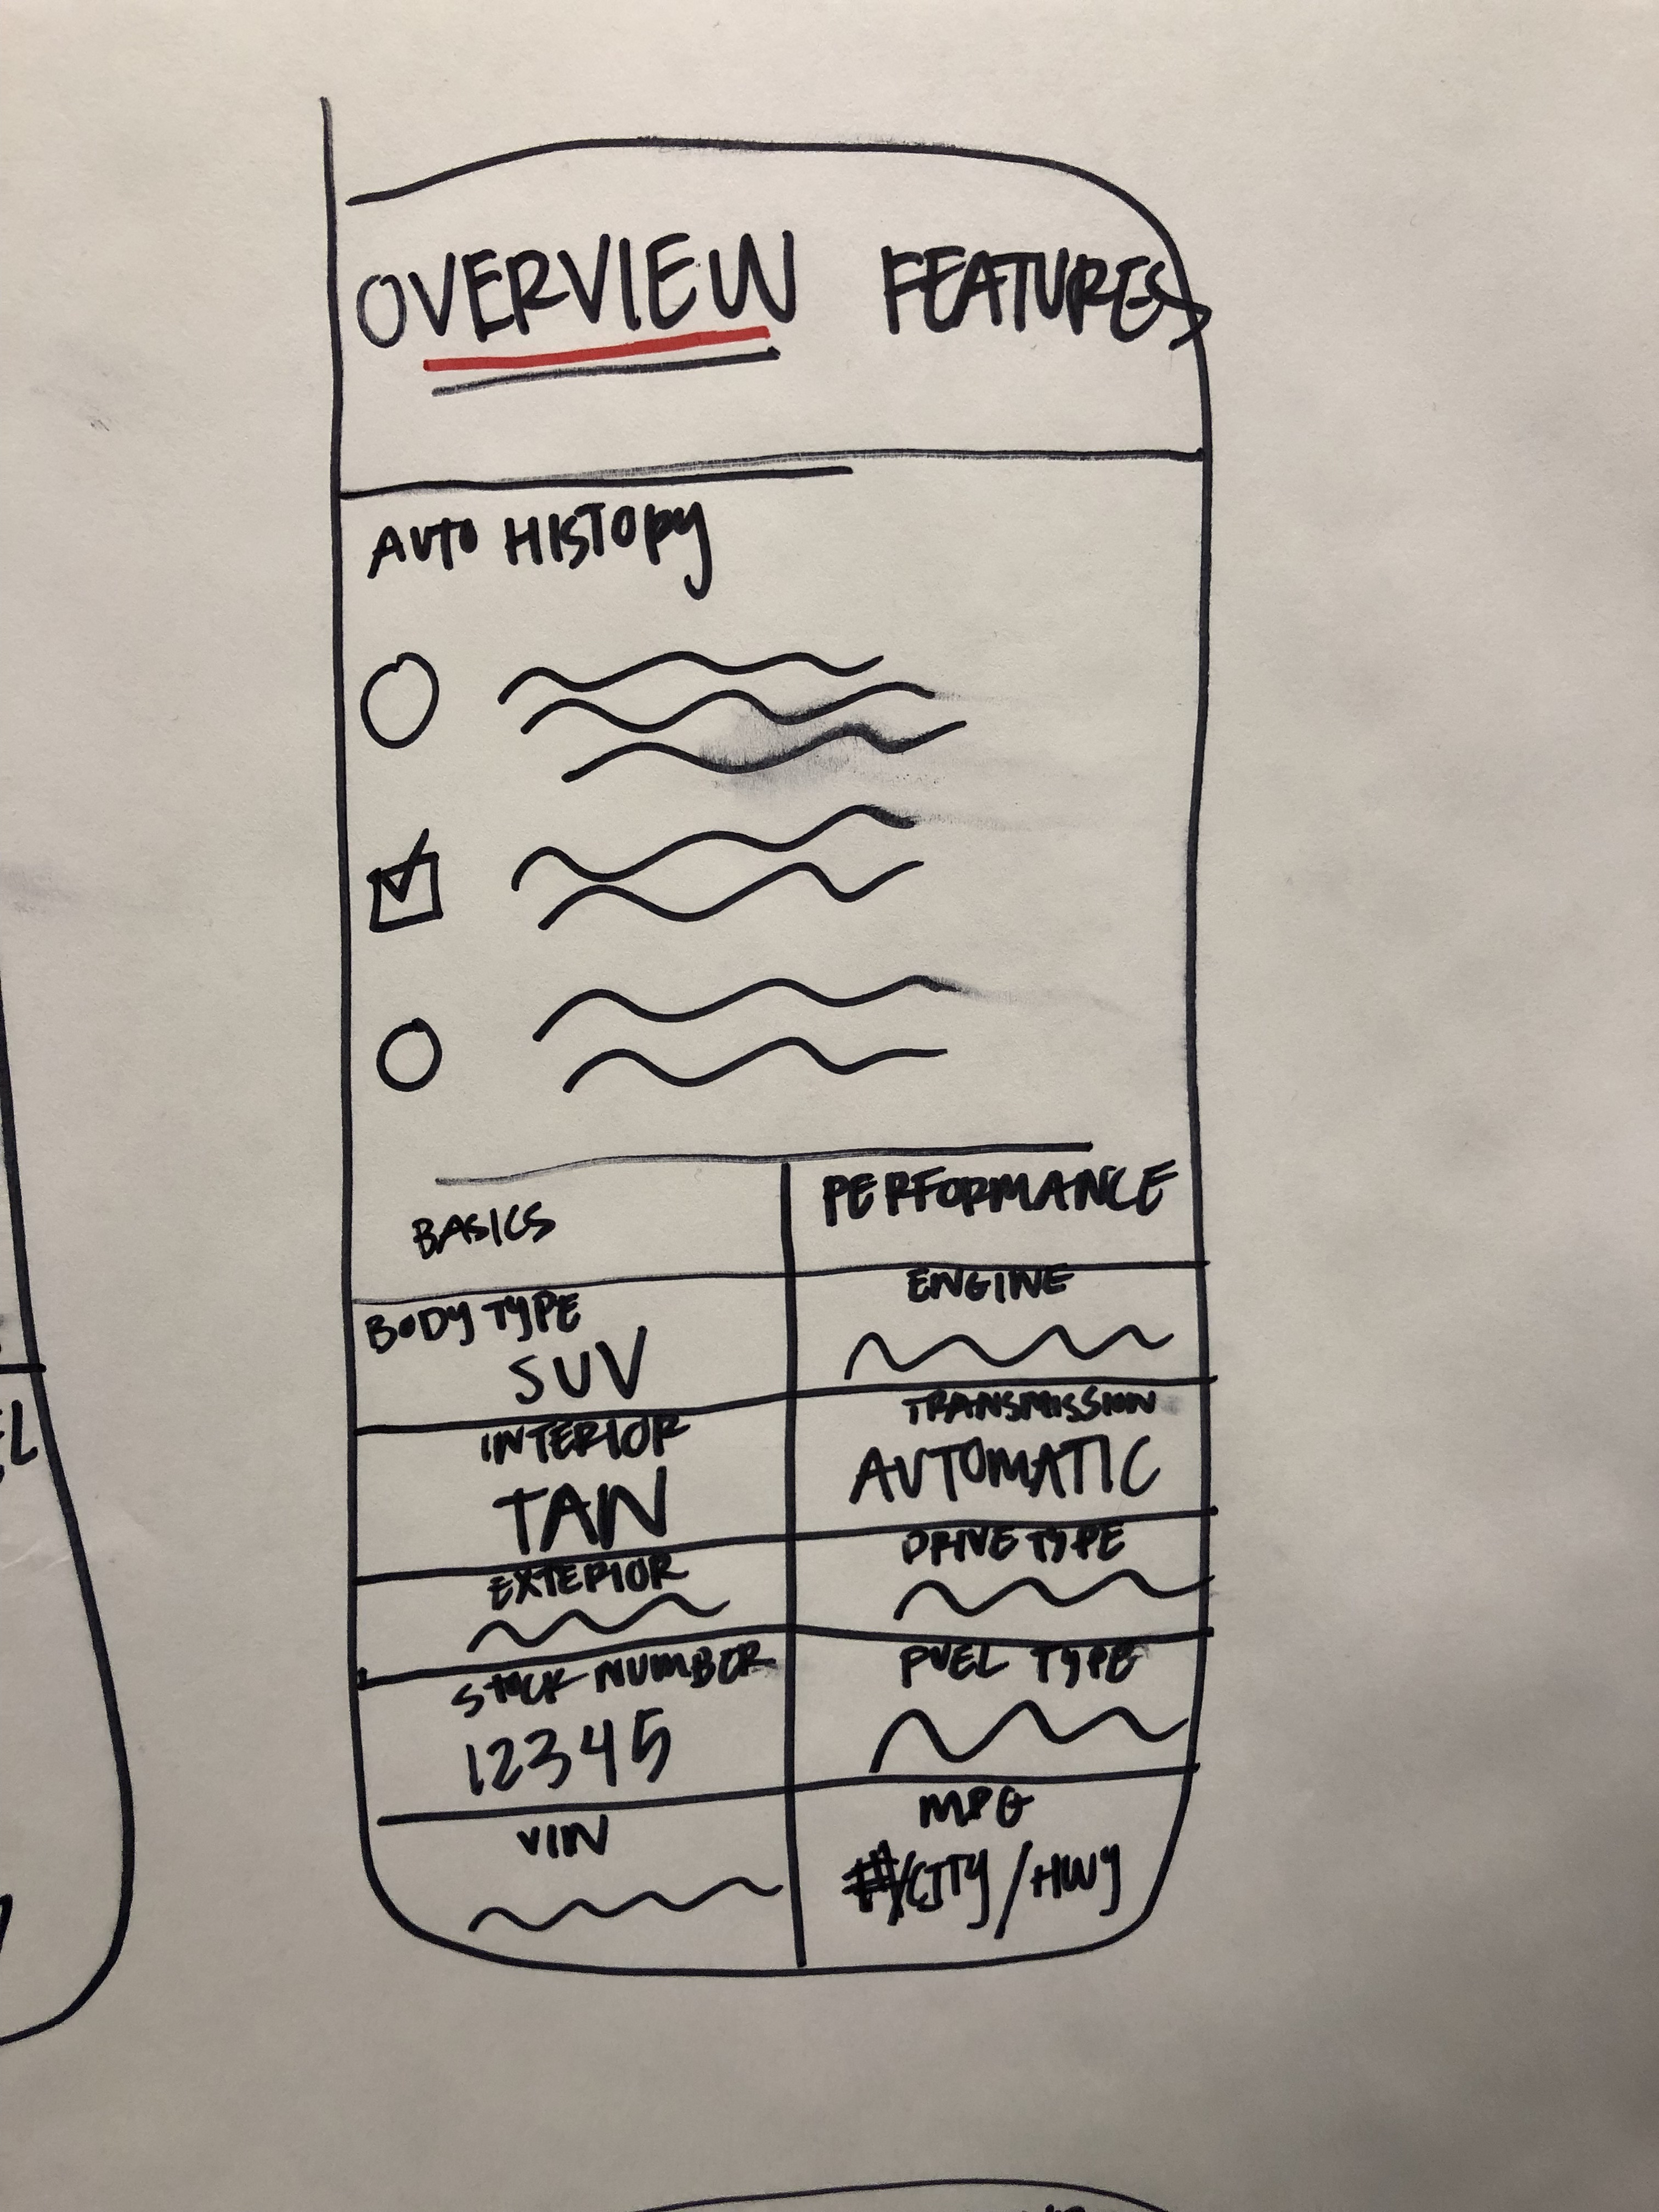 OVERVIEW FEATURES
AUTO HISTORY
BASICS
PERFORMANCE
BODY TYPE
SUV
ENGINE
INTERIOR
TAN
TRANSMISSION
AUTOMATIC
EXTERIOR
DRIVE TYPE
STOCK NUMBER
12345
FUEL TYPE
VIN
MPG
#/CITY/HWY